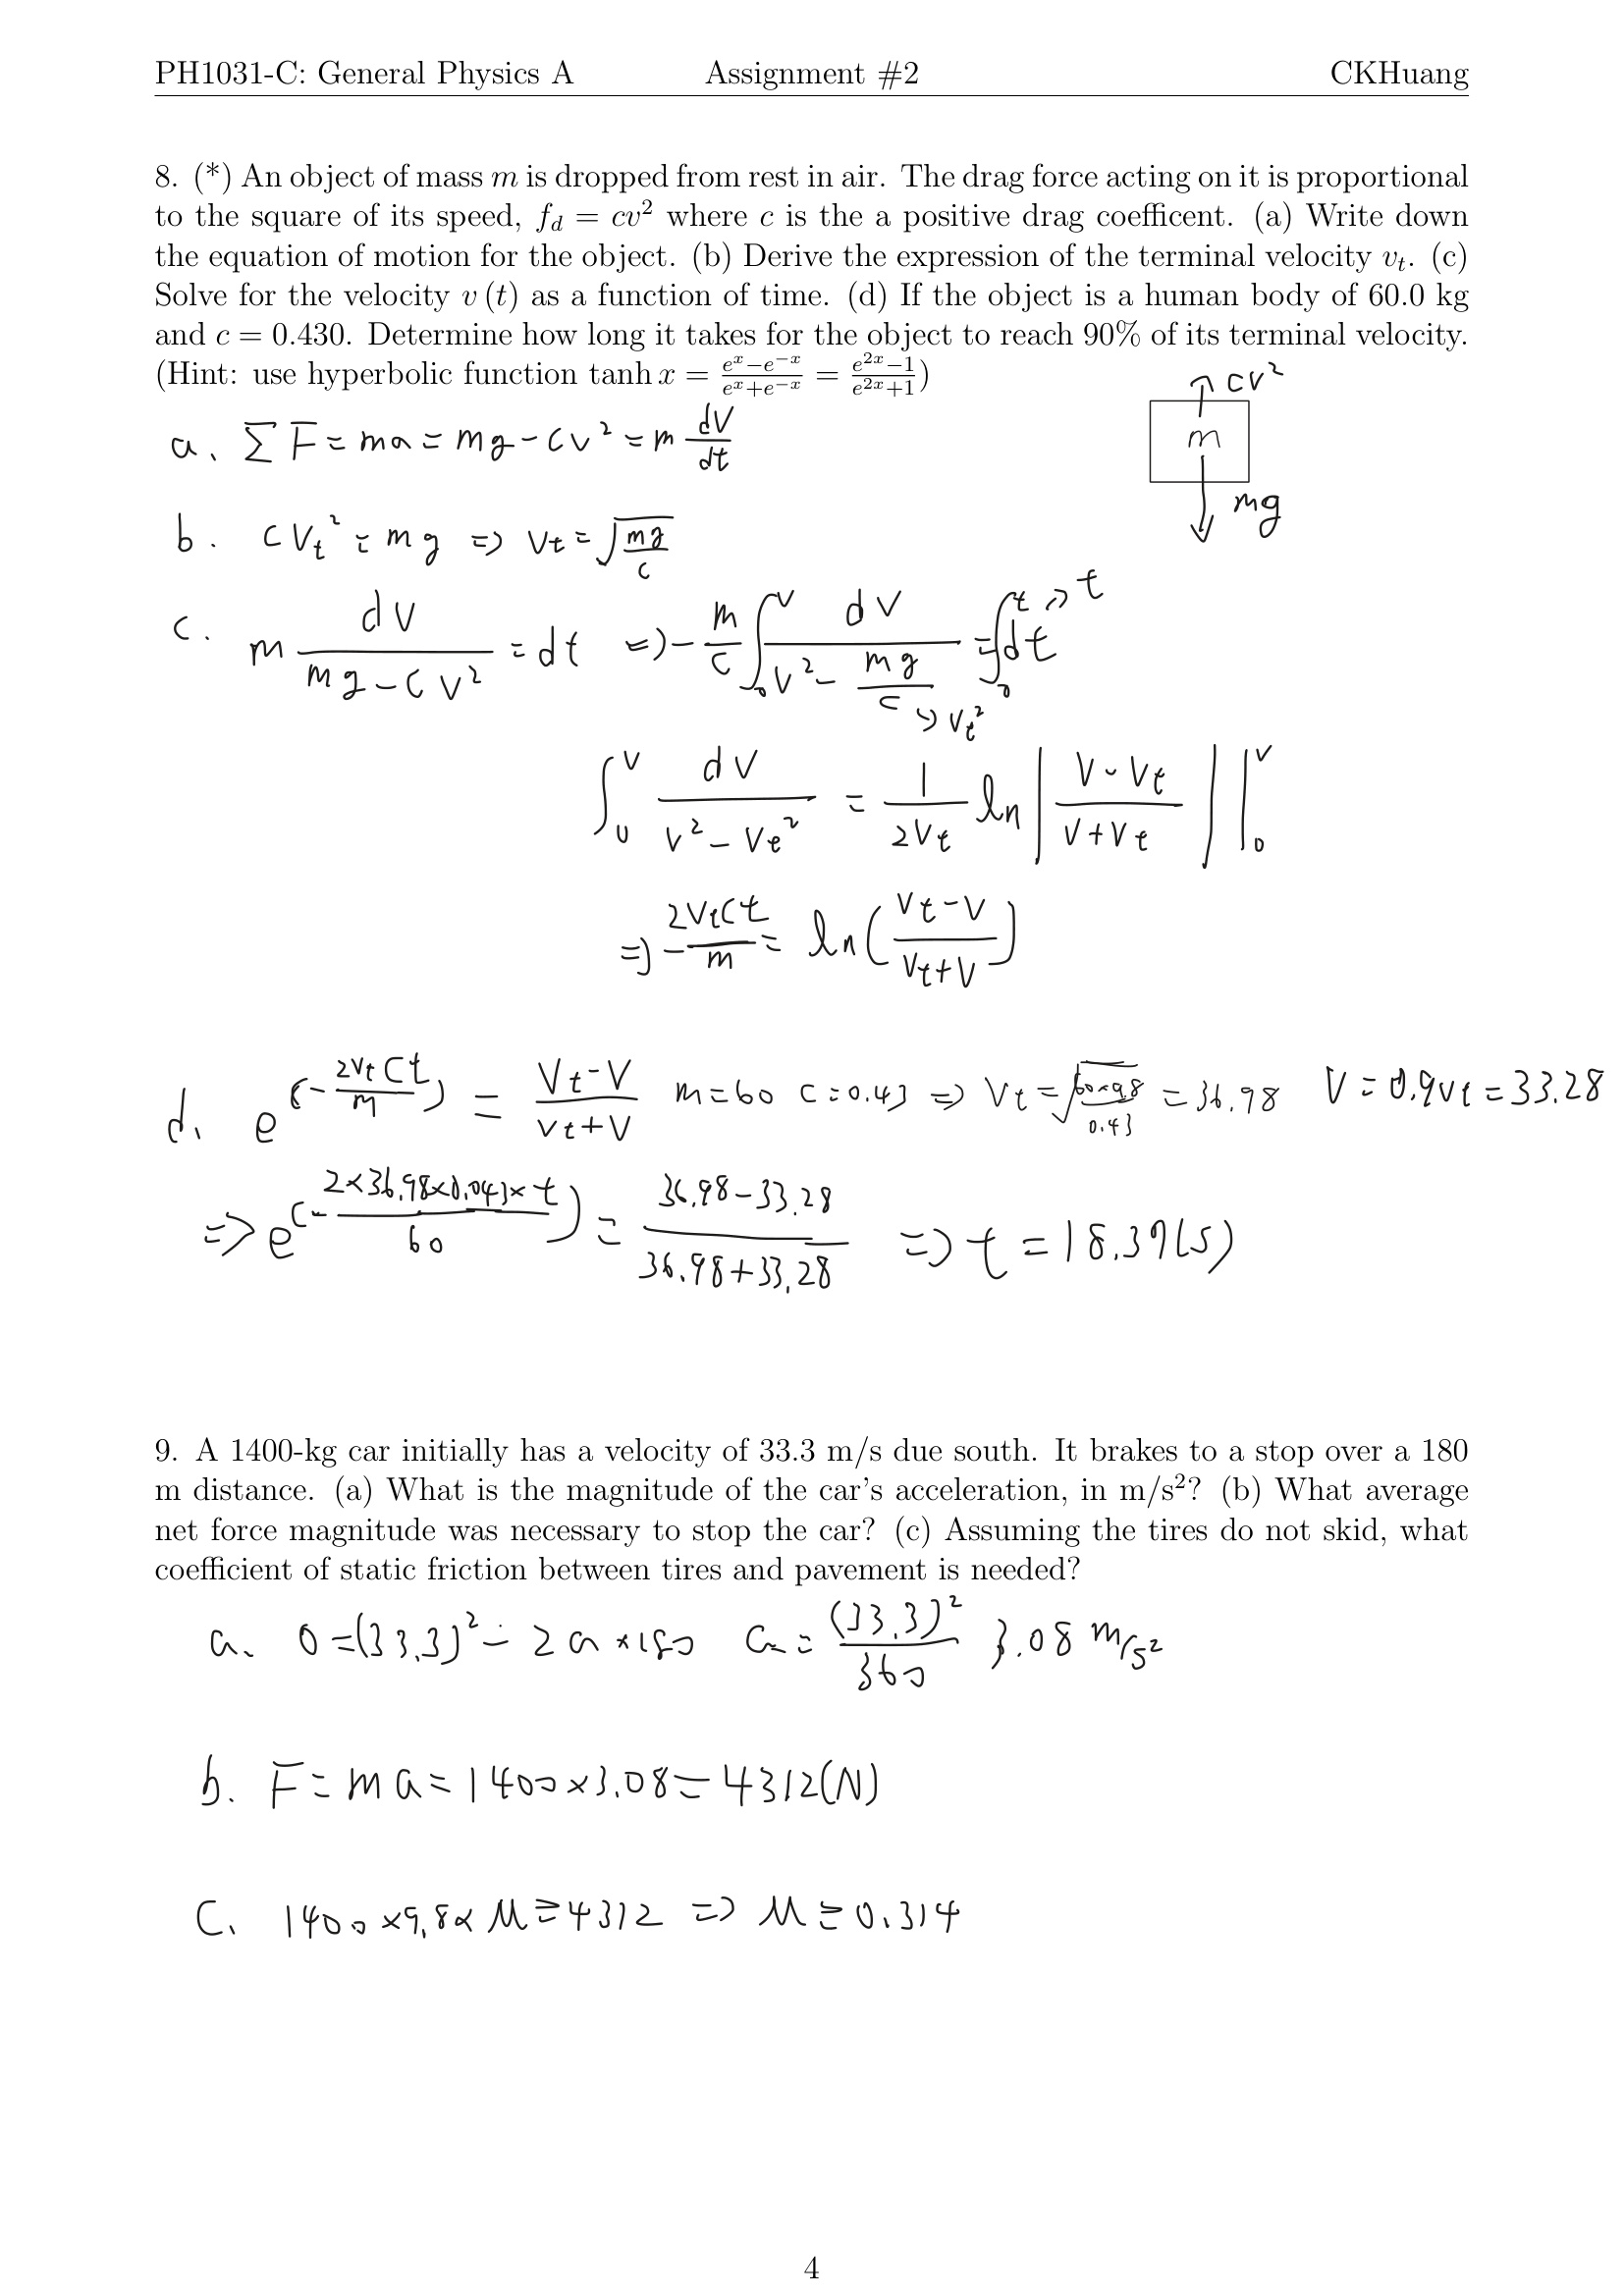 PH1031-C: General Physics A Assignment #2 CKHuang
8. (*) An object of mass m is dropped from rest in air. The drag force acting on it is proportional
to the square of its speed, f_d = cv² where c is the a positive drag coefficent. (a) Write down
the equation of motion for the object. (b) Derive the expression of the terminal velocity v_t. (c)
Solve for the velocity v (t) as a function of time. (d) If the object is a human body of 60.0 kg
and c = 0.430. Determine how long it takes for the object to reach 90% of its terminal velocity.
(Hint: use hyperbolic function tanh x = (e^x − e^−x)/(e^x + e^−x) = (e^2x − 1)/(e^2x + 1))
cv²
m
mg
a. ΣF = ma = mg − cv² = m dV/dt
b. cV_t² = mg ⇒ V_t = √(mg/c)
c. m dV/(mg − cV²) = dt ⇒ −m/c ∫₀^V dV/(V² − mg/c) = ∫₀^t dt → t
→ V_t²
∫₀^V dV/(V² − V_t²) = 1/(2V_t) ln |(V − V_t)/(V + V_t)| |₀^V
⇒ −2V_t ct/m = ln((V_t − V)/(V_t + V))
d. e^(−2V_t ct/m) = (V_t − V)/(V_t + V) m = 60 c = 0.43 ⇒ V_t = √(60×9.8/0.43) = 36.98 V = 0.9V_t = 33.28
⇒ e^(−2×36.98×0.043×t/60) = (36.98 − 33.28)/(36.98 + 33.28) ⇒ t = 18.39(s)
9. A 1400-kg car initially has a velocity of 33.3 m/s due south. It brakes to a stop over a 180
m distance. (a) What is the magnitude of the car's acceleration, in m/s²? (b) What average
net force magnitude was necessary to stop the car? (c) Assuming the tires do not skid, what
coefficient of static friction between tires and pavement is needed?
a. 0 = (33.3)² − 2a×180 a = (33.3)²/360 3.08 m/s²
b. F = ma = 1400×3.08 = 4312(N)
c. 1400×9.8×μ ≥ 4312 ⇒ μ ≥ 0.314
4